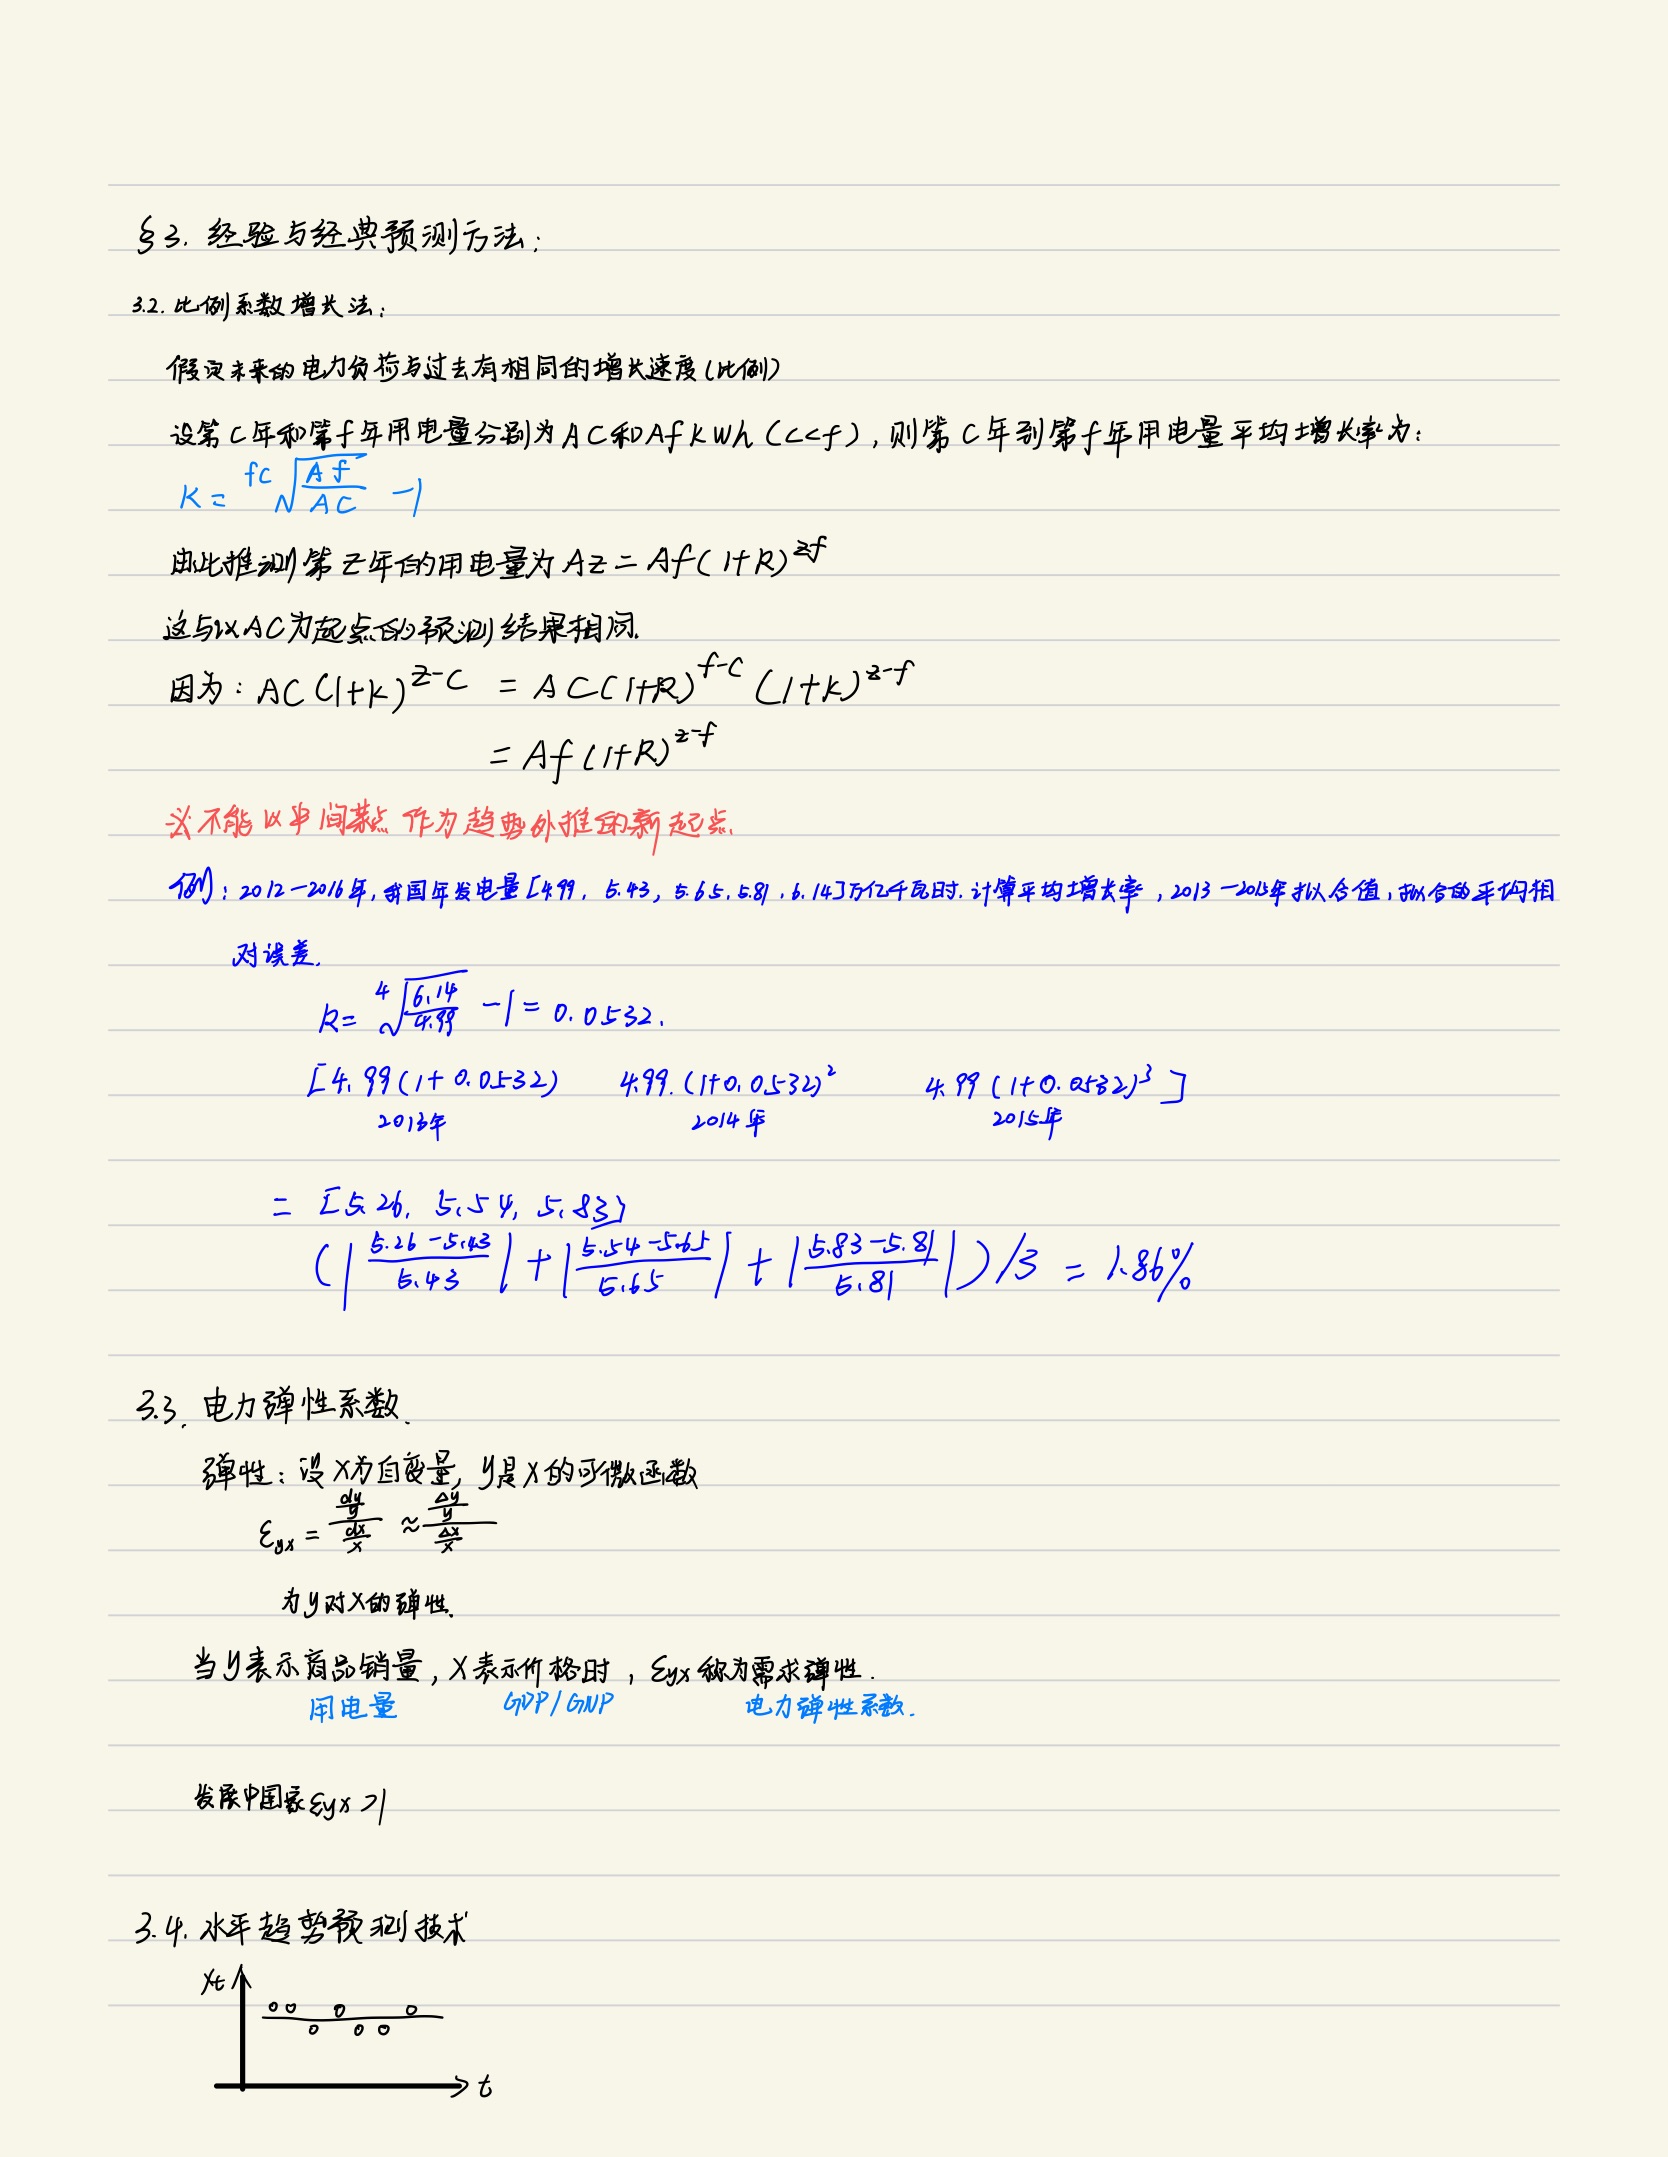 §3. 经验与经典预测方法:
3.2. 比例系数增长法:
假设未来的电力负荷与过去有相同的增长速度(比例)
设第C年和第f年用电量分别为AC和Af kWh (C<f), 则第C年到第f年用电量平均增长率为:
K = fC√(Af/AC) -1
由此推测第Z年的用电量为 Az = Af(1+k)^zf
这与以AC为起点的预测结果相同.
因为: AC(1+k)^z-C = AC(1+k)^f-C (1+k)^z-f
= Af(1+k)^z-f
※不能以中间某点作为趋势外推的新起点.
例: 2012-2016年, 我国年发电量[4.99, 5.43, 5.65, 5.81, 6.14]万亿千瓦时. 计算平均增长率, 2013-2015年拟合值, 拟合的平均相
对误差.
k = 4√(6.14/4.99) -1 = 0.0532.
[4.99(1+0.0532) 4.99.(1+0.0532)² 4.99(1+0.0532)³]
2013年 2014年 2015年
= [5.26, 5.54, 5.83]
(|(5.26-5.43)/5.43| + |(5.54-5.65)/5.65| + |(5.83-5.81)/5.81|)/3 = 1.86%
3.3. 电力弹性系数.
弹性: 设X为自变量, y是X的可微函数
εyx = (dy/y)/(dx/x) ≈ (Δy/y)/(Δx/x)
为y对X的弹性.
当y表示商品销量, X表示价格时, εyx称为需求弹性.
用电量 GDP/GNP 电力弹性系数.
发展中国家εyx >1
3.4. 水平趋势预测技术
Xt
t